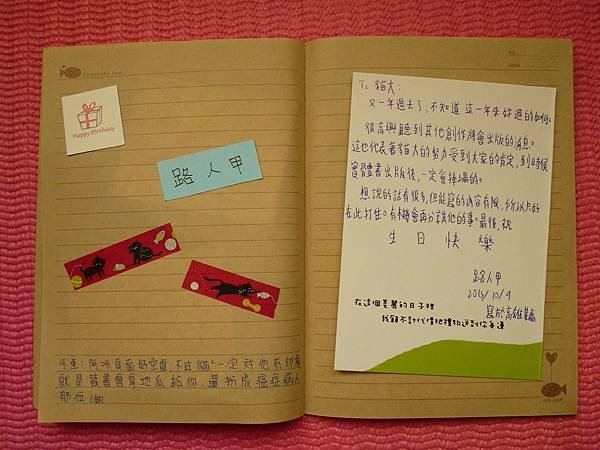 Happy Birthday
路人甲
可惡！阿 頁面好空虛，不過貓大一定對他有印象
就是簽書會拿地瓜給你，還扮成癌症病人
那位
NO.
Date
To 貓大：
又一年過去了，不知道這一年來妳過的如何。
很高興聽到其他創作將會出版的消息。
這也代表著貓大的努力受到大家的肯定，到時候
實體書出版後，一定會捧場的。
想說的話有很多，但能寫的內容有限，所以只好
在此打住。有機會再分享其他的事。最後，祝
生日快樂
路人甲
2013/10/9
寫於高雄
在這個美麗的日子裡
我願不計代價把禮物送到你身邊